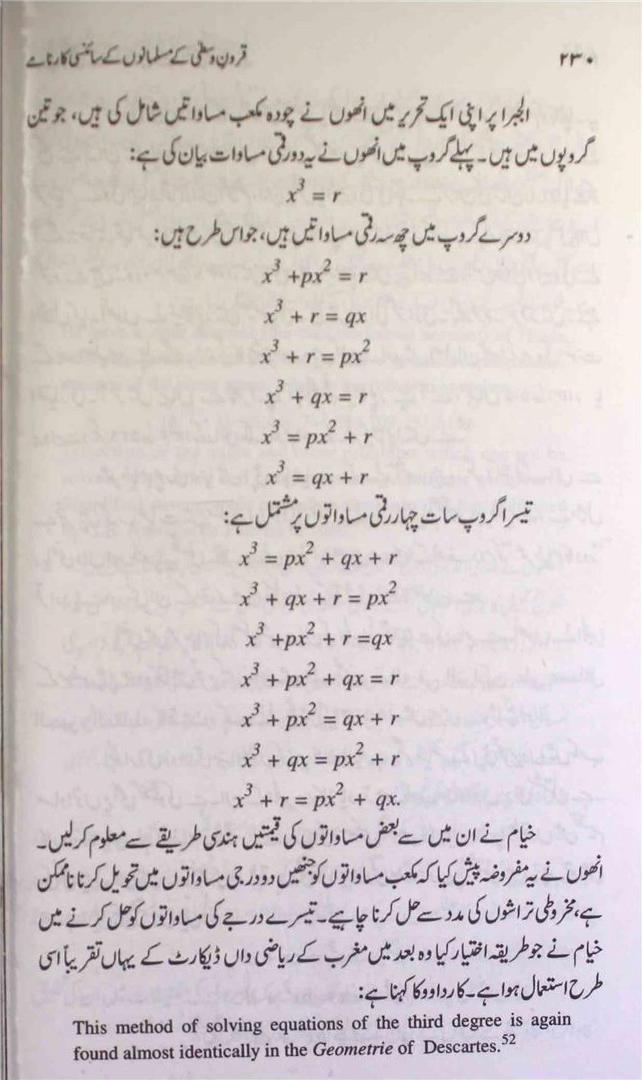 ۲۳۰ قرونِ وسطٰی کے مسلمانوں کے سائنسی کارنامے
الجبرا پر اپنی ایک تحریر میں انھوں نے چودہ مکعب مساواتیں شامل کی ہیں، جو تین
گروپوں میں ہیں۔ پہلے گروپ میں انھوں نے یہ دو رقمی مساوات بیان کی ہے:
x³ = r
دوسرے گروپ میں چھ سہ رقمی مساواتیں ہیں، جو اس طرح ہیں:
x³ +px² = r
x³ + r = qx
x³ + r = px²
x³ + qx = r
x³ = px² + r
x³ = qx + r
تیسرا گروپ سات چہار رقمی مساواتوں پر مشتمل ہے:
x³ = px² + qx + r
x³ + qx + r = px²
x³ +px² + r =qx
x³ + px² + qx = r
x³ + px² = qx + r
x³ + qx = px² + r
x³ + r = px² + qx.
خیام نے ان میں سے بعض مساواتوں کی قیمتیں ہندسی طریقے سے معلوم کر لیں۔
انھوں نے یہ مفروضہ پیش کیا کہ مکعب مساواتوں کو جنھیں دو درجی مساواتوں میں تحویل کرنا ناممکن
ہے، مخروطی تراشوں کی مدد سے حل کرنا چاہیے۔ تیسرے درجے کی مساواتوں کو حل کرنے میں
خیام نے جو طریقہ اختیار کیا وہ بعد میں مغرب کے ریاضی داں ڈیکارٹ کے یہاں تقریباً اسی
طرح استعمال ہوا ہے۔ کارداوو کا کہنا ہے:
This method of solving equations of the third degree is again
found almost identically in the Geometrie of Descartes.⁵²